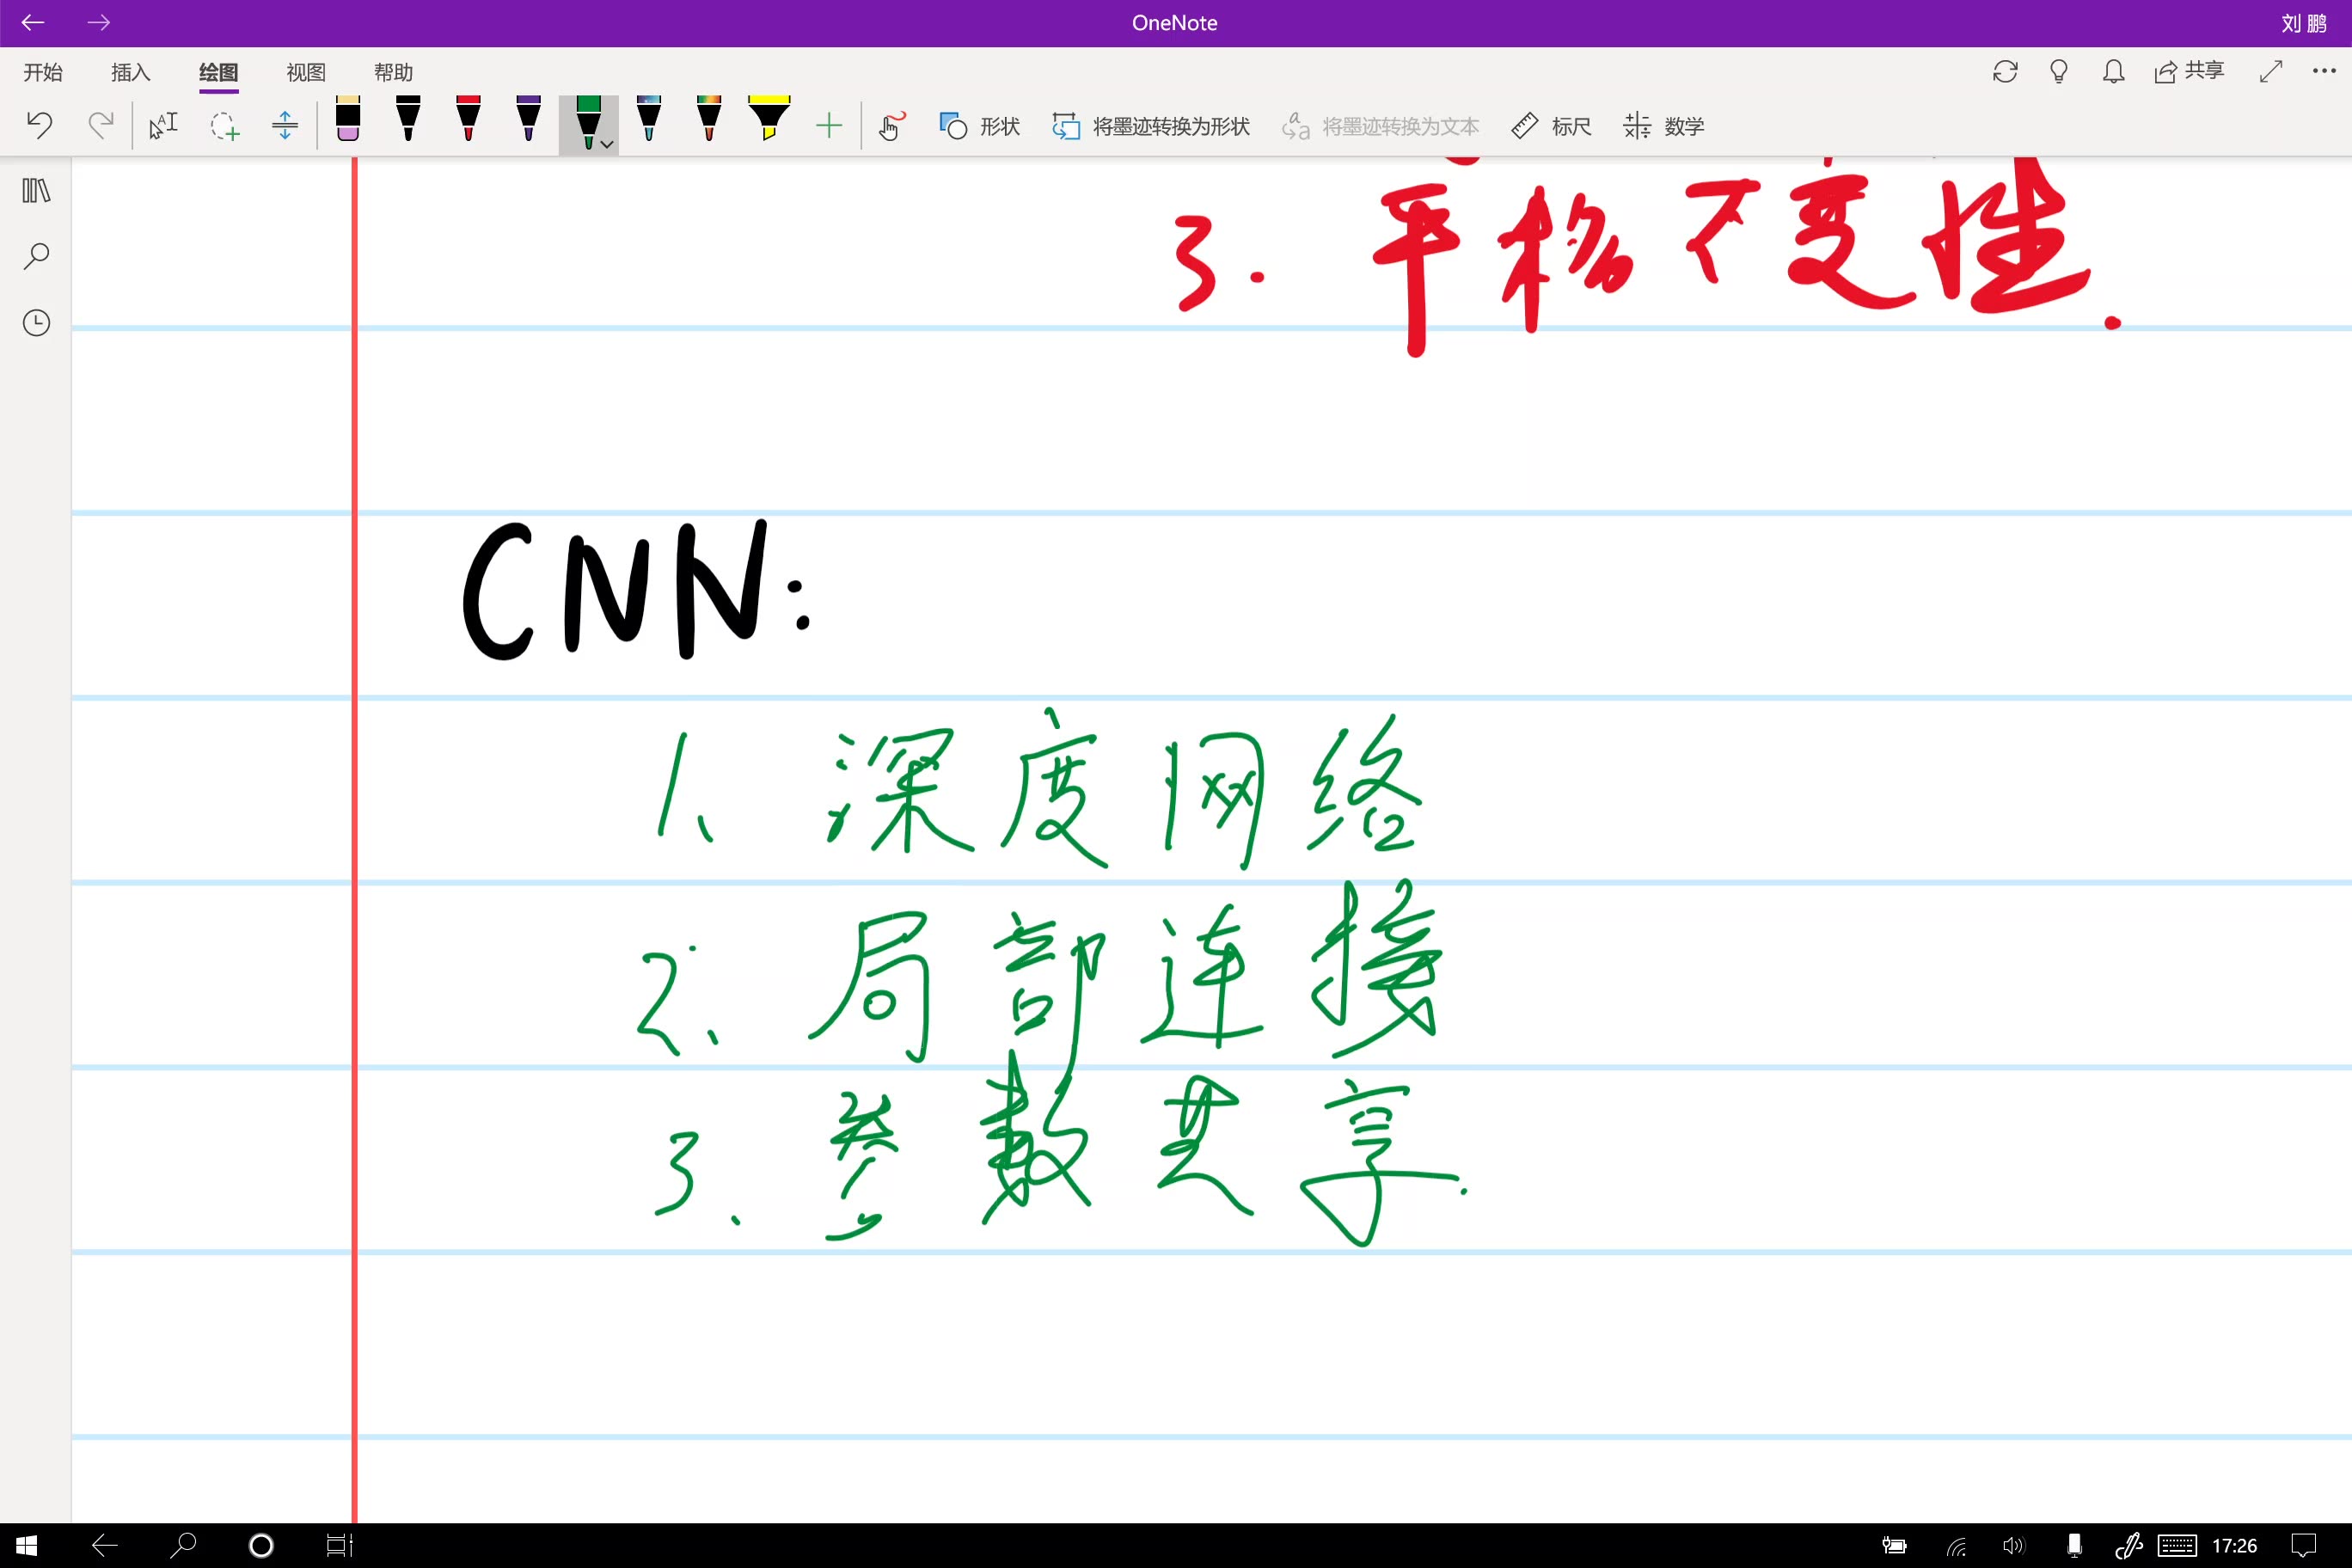 OneNote
刘 鹏
开始 插入 绘图 视图 帮助 共享
形状 将墨迹转换为形状 将墨迹转换为文本 标尺 数学
3. 平移不变性.
CNN:
1、深度网络
2、局部连接
3、参数共享.
17:26